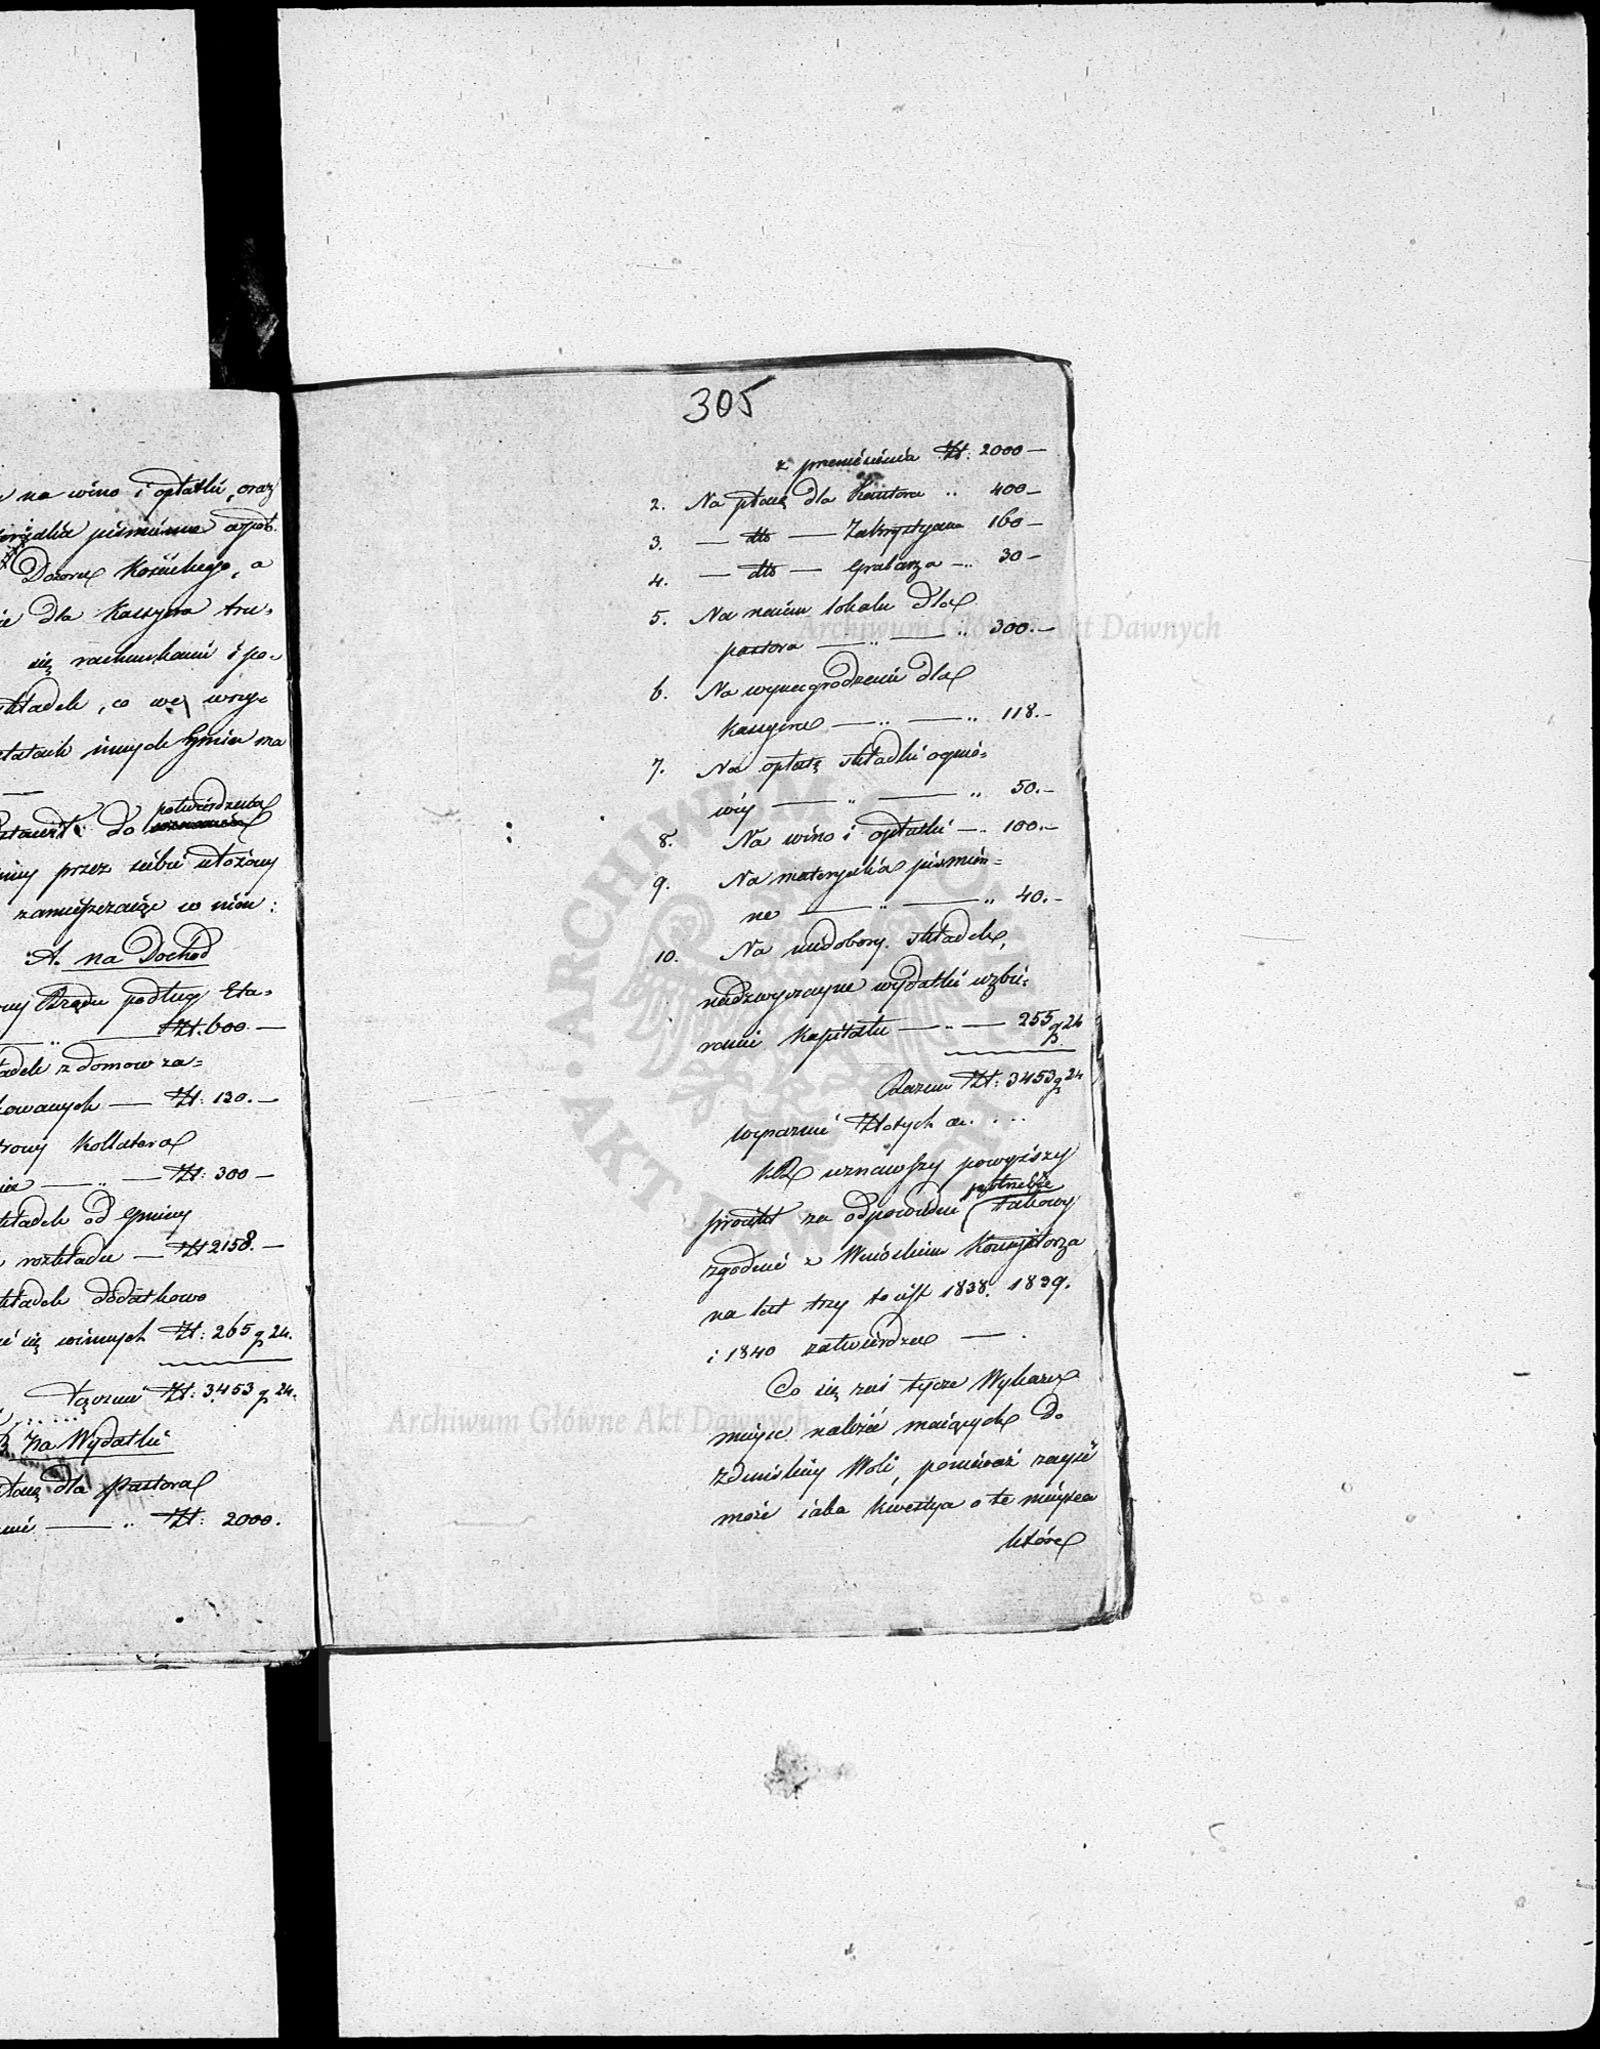 na wino i opłatki, oraz
piśmienne a pod.
Dozoru Kościelnego, a
dla Kassyera tru-
się rachunkami i po-
składek, co we wszy-
etatach innych Gmin ma
do potwierdzenia
przez siebie ułożony
zamieszczaiąc w nim:
A. na Dochód
Rządu podług Eta-
Zł. 600.—
z domow za-
— Zł: 130.—
Kollatora
— „ — Zł: 300 —
składek od Gminy
rozkładu — Zł 2158.—
składek dodatkowo
się winnych Zł: 265 g 24.
Łącznie Zł: 3453 g 24.
B. na Wydatki
dla Pastora
— „ Zł: 2000.
305
z przeniesienia Zł: 2000—
2. Na płacę dla Kantora „ 400—
3. — dto — Zakrystyana 160—
4. — dto — Grabarza — „ 30—
5. Na naiem lokalu dla
pastora — „ — „ 300.—
6. Na wynagrodzenie dla
Kassyera — „ — „ 118.—
7. Na opłatę składki ognio-
wéy — „ — „ 50.—
8. Na wino i opłatki — „ 100.—
9. Na materyalia piśmien-
ne — „ — „ 40.—
10. Na niedobory składek,
nadzwyczayne wydatki uzbie-
ranie kapitału — „ — 255 g 24
Razem Zł: 3453 g 24
wyraznie Złotych
KR uznawszy powyższy
proiekt za odpowiedni potrzebie takowy
zgodnie z Wnioskiem Kommissarza
na lat trzy to iest 1838. 1839.
i 1840 zatwierdza — .
Co się zaś tycze Wykazu
mieysc należeć maiących do
Zduńskiey Woli, ponieważ zayść
może iaka kwestya o te mieysca
które
Archiwum Główne Akt Dawnych
Archiwum Główne Akt Dawnych